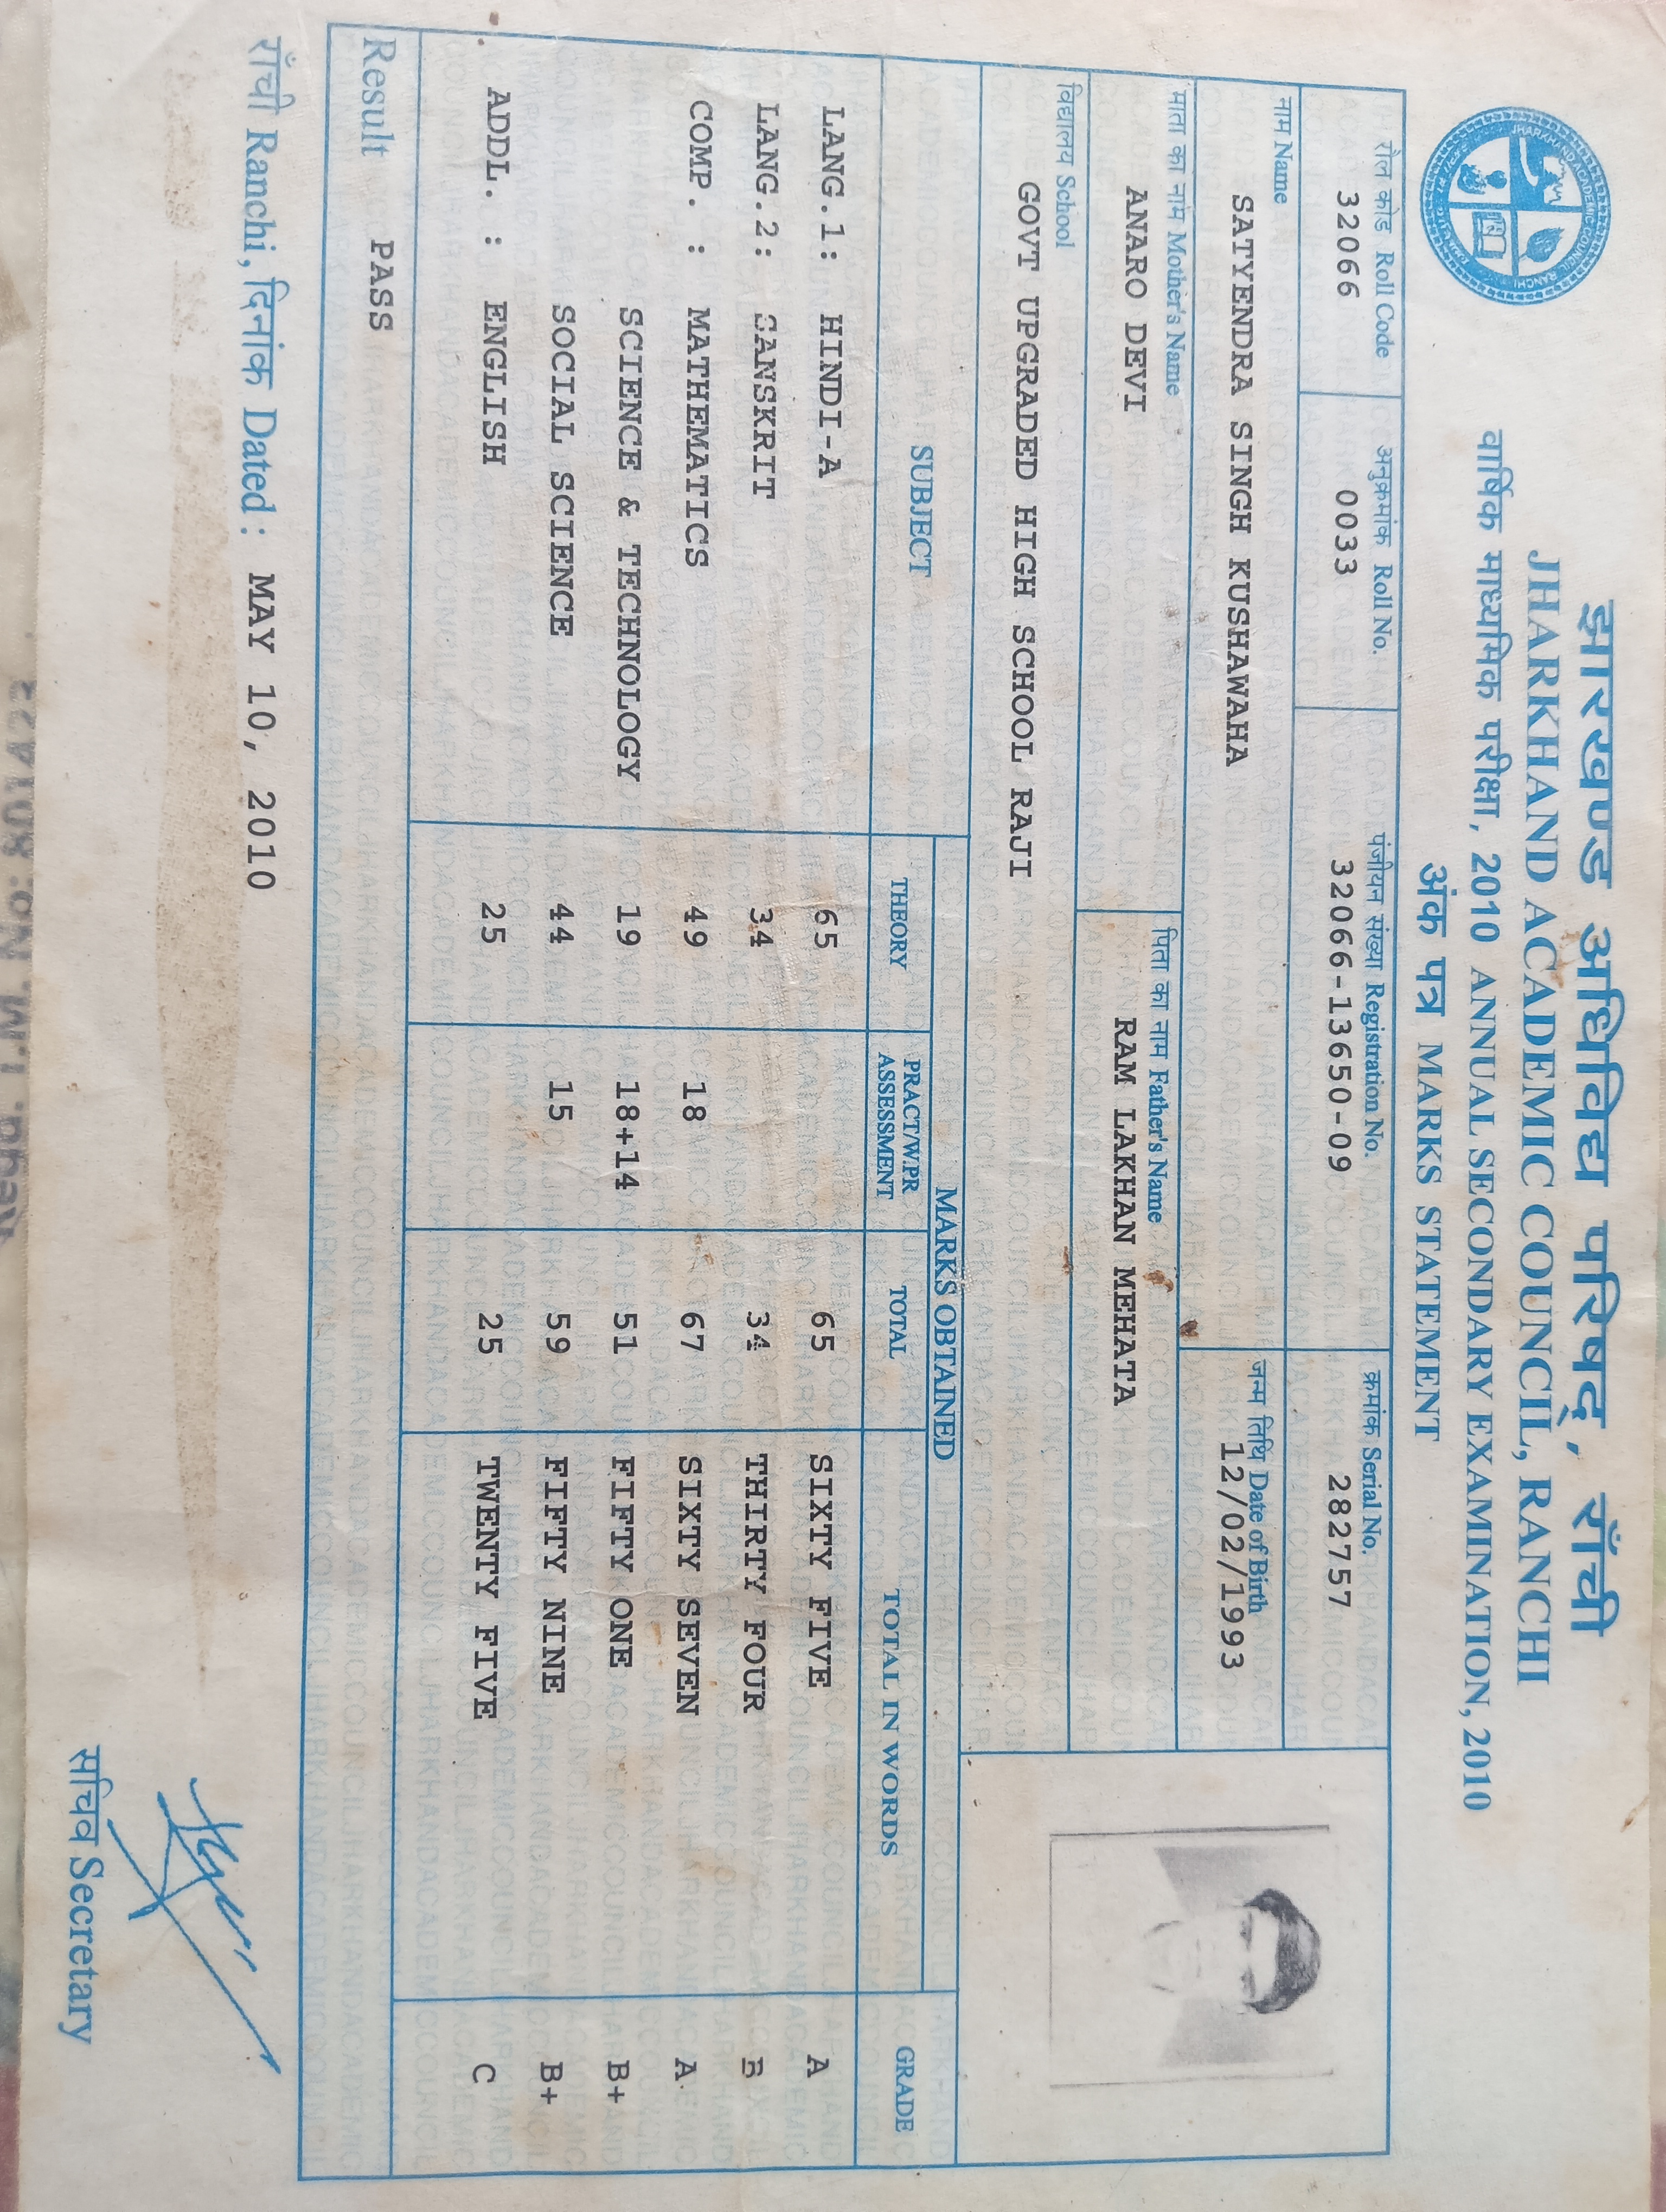 झारखण्ड अधिविद्य परिषद्, राँची
JHARKHAND ACADEMIC COUNCIL, RANCHI
वार्षिक माध्यमिक परीक्षा, 2010 ANNUAL SECONDARY EXAMINATION, 2010
अंक पत्र MARKS STATEMENT
रौल कोड Roll Code अनुक्रमांक Roll No. पंजीयन संख्या Registration No. क्रमांक Serial No.
32066 0033 32066-13650-09 282757
नाम Name जन्म तिथि Date of Birth
SATYENDRA SINGH KUSHAWAHA 12/02/1993
माता का नाम Mother's Name पिता का नाम Father's Name
ANARO DEVI RAM LAKHAN MEHATA
विद्यालय School
GOVT UPGRADED HIGH SCHOOL RAJI
SUBJECT MARKS OBTAINED GRADE
THEORY PRACT/W.PR ASSESSMENT TOTAL TOTAL IN WORDS
LANG.1: HINDI-A 65 65 SIXTY FIVE A
LANG.2: SANSKRIT 34 34 THIRTY FOUR B
COMP. : MATHEMATICS 49 18 67 SIXTY SEVEN A
SCIENCE & TECHNOLOGY 19 18+14 51 FIFTY ONE B+
SOCIAL SCIENCE 44 15 59 FIFTY NINE B+
ADDL. : ENGLISH 25 25 TWENTY FIVE C
Result PASS
राँची Ranchi, दिनांक Dated: MAY 10, 2010
सचिव Secretary